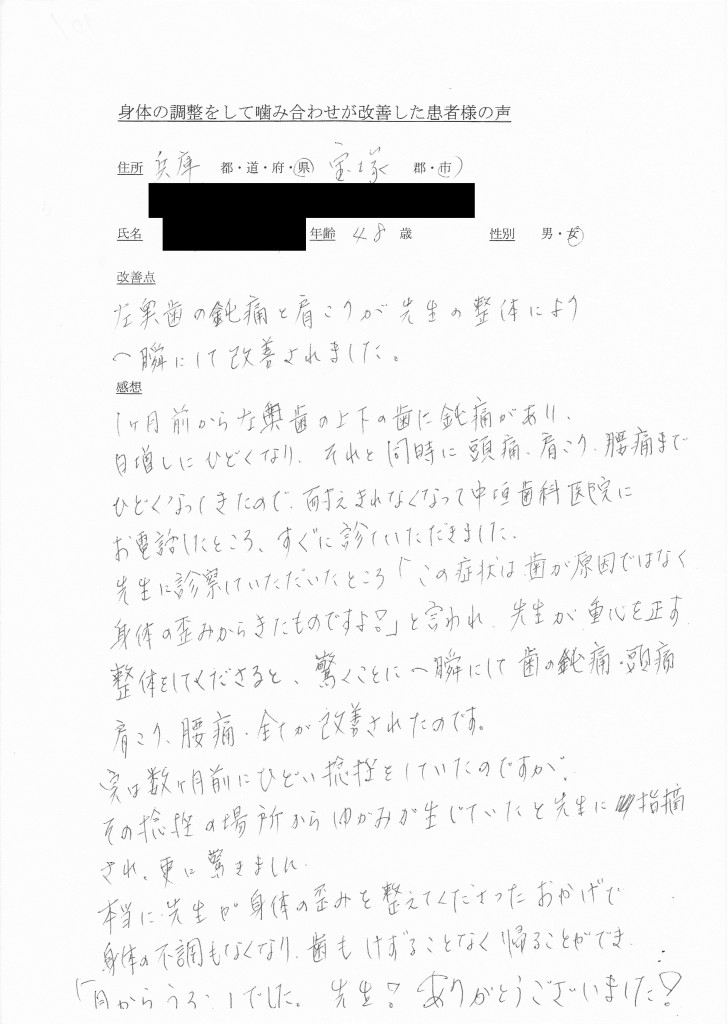 身体の調整をして噛み合わせが改善した患者様の声
住所 兵庫 都・道・府・県 宝塚 郡・市
氏名 年齢 48 歳 性別 男・女
改善点
左奥歯の鈍痛と肩こりが先生の整体により
一瞬にして改善されました。
感想
1ヶ月前から左奥歯の上下の歯に鈍痛があり、
日増しにひどくなり、それと同時に頭痛、肩こり、腰痛まで
ひどくなってきたので、耐えきれなくなって中垣歯科医院に
お電話したところ、すぐに診ていただきました。
先生に診察していただいたところ「この症状は歯が原因ではなく
身体の歪みからきたものですよ!」と言われ、先生が重心を正す
整体をしてくださると、驚くことに一瞬にして歯の鈍痛・頭痛
肩こり、腰痛・全てが改善されたのです。
実は数ヶ月前にひどい捻挫をしていたのですが、
その捻挫の場所からゆがみが生じていたと先生に指摘
され、更に驚きました。
本当に先生が身体の歪みを整えてくださったおかげで
身体の不調もなくなり、歯もけずることなく帰ることができ、
「目からうろこ」でした。先生!ありがとうございました!